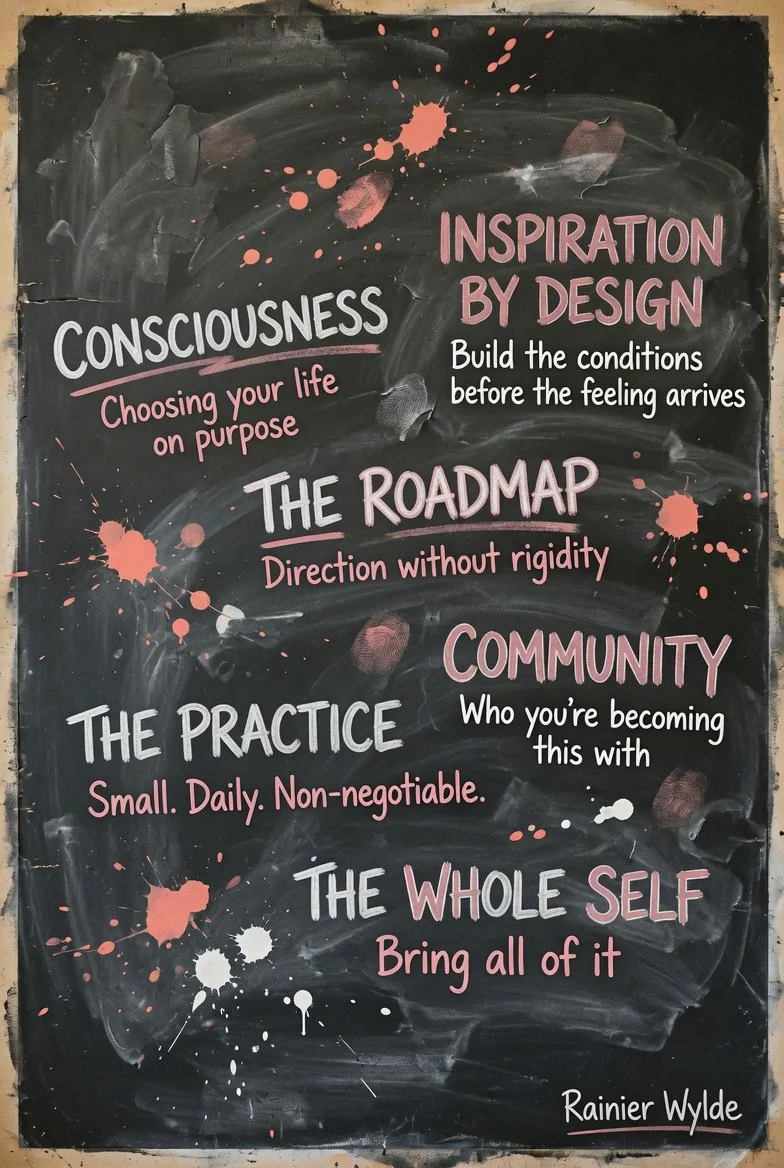 INSPIRATION
BY DESIGN
Build the conditions
before the feeling arrives
CONSCIOUSNESS
Choosing your life
on purpose
THE ROADMAP
Direction without rigidity
COMMUNITY
Who you're becoming
this with
THE PRACTICE
Small. Daily. Non-negotiable.
THE WHOLE SELF
Bring all of it
Rainier Wylde